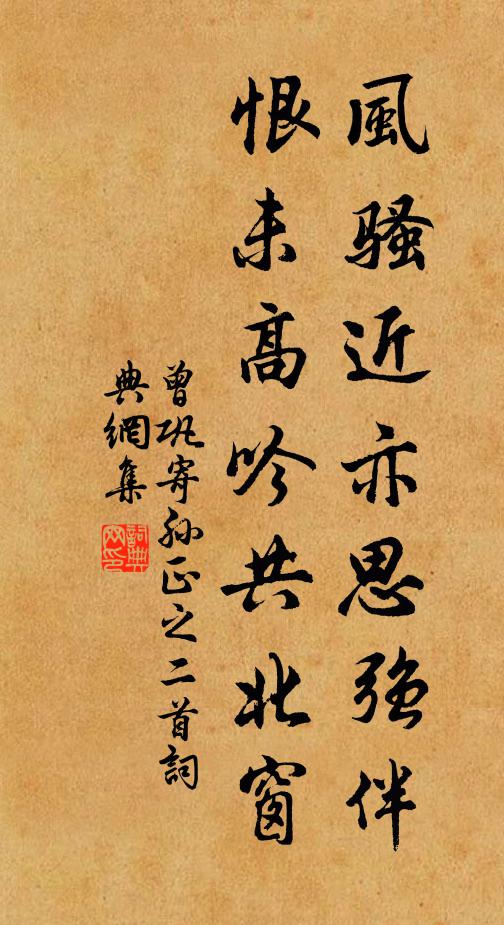 風騷近亦思強伴
恨未高吟共北窗
曾巩寄孙正之二首詞
典網集
詞典
网印